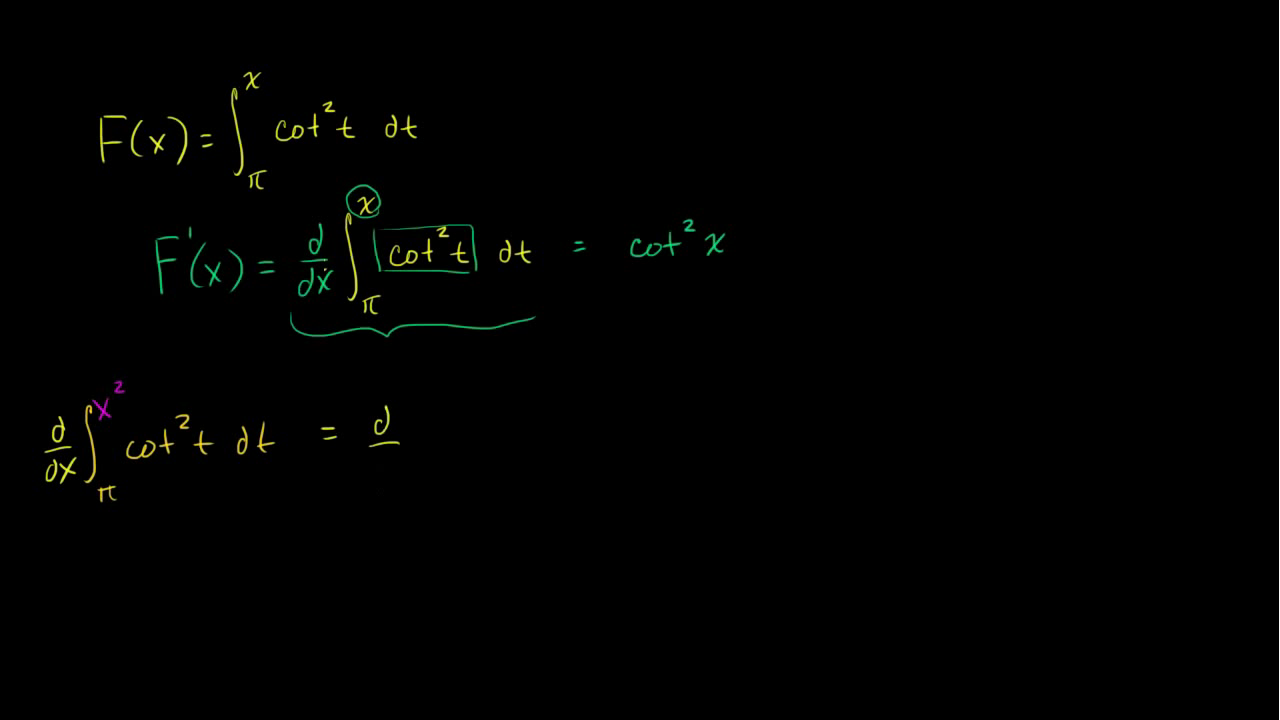 F(x) = ∫_π^x cot² t dt
F'(x) = d/dx ∫_π^x cot² t dt = cot² x
d/dx ∫_π^x² cot² t dt = d